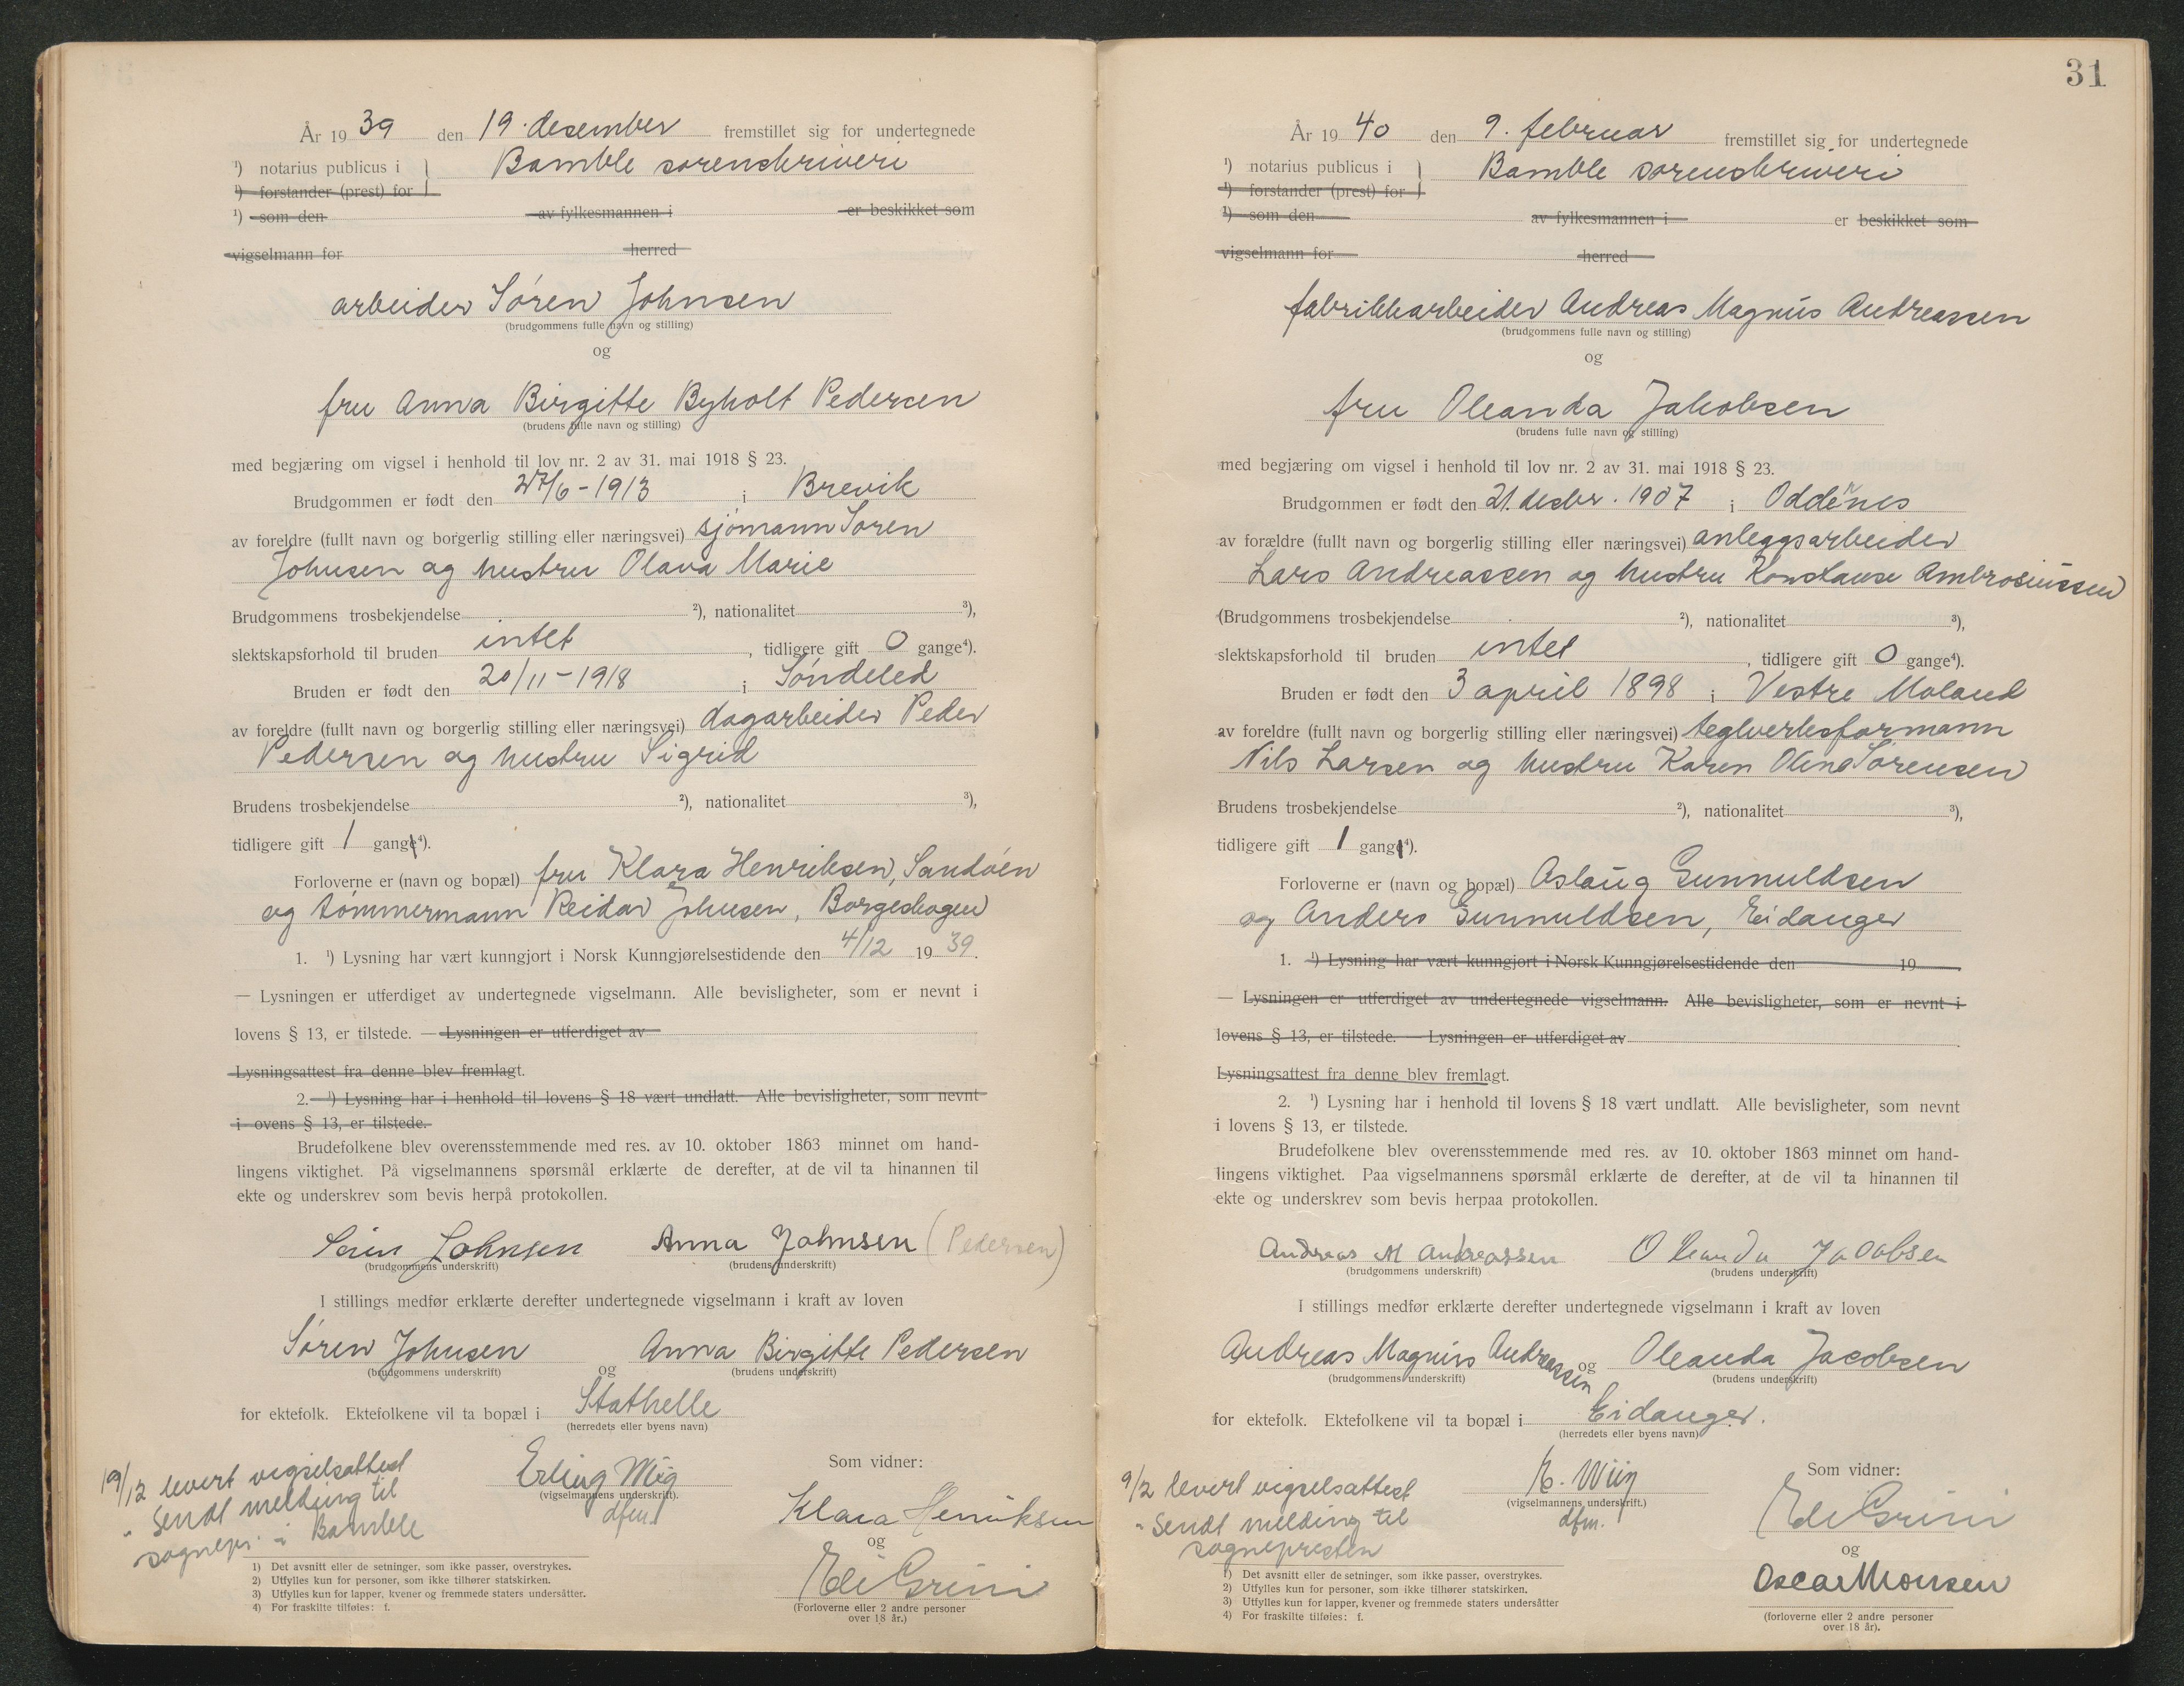 År 1939 den 19. desember fremstillet sig for undertegnede
¹) notarius publicus i } Bamble sorenskriveri
¹) forstander (prest) for
¹) som den av fylkesmannen i er beskikket som
vigselmann for herred
arbeider Søren Johnsen
(brudgommens fulle navn og stilling)
og
fru Anna Birgitte Byholt Pedersen
(brudens fulle navn og stilling)
med begjæring om vigsel i henhold til lov nr. 2 av 31. mai 1918 § 23.
Brudgommen er født den 27/6-1913 i Brevik
av foreldre (fullt navn og borgerlig stilling eller næringsvei) sjømann Søren
Johnsen og hustru Olava Marie
Brudgommens trosbekjendelse ²), nationalitet ³),
slektskapsforhold til bruden intet, tidligere gift 0 gange⁴).
Bruden er født den 20/11-1918 i Søndeled
av foreldre (fullt navn og borgerlig stilling eller næringsvei) dagarbeider Peder
Pedersen og hustru Sigrid
Brudens trosbekjendelse ²), nationalitet ³),
tidligere gift 1 gang⁴).
Forloverne er (navn og bopæl) fru Klara Henriksen, Sandøen
og tømmermann Reidar Johnsen, Borgeskogen
1. ¹) Lysning har vært kunngjort i Norsk Kunngjørelsestidende den 4/12 1939.
— Lysningen er utferdiget av undertegnede vigselmann. Alle bevisligheter, som er nevnt i
lovens § 13, er tilstede. — Lysningen er utferdiget av
Lysningsattest fra denne blev fremlagt.
2. ¹) Lysning har i henhold til lovens § 18 vært undlatt. Alle bevisligheter, som nevnt
i ovens § 13, er tilstede.
Brudefolkene blev overensstemmende med res. av 10. oktober 1863 minnet om hand-
lingens viktighet. På vigselmannens spørsmål erklærte de derefter, at de vil ta hinannen til
ekte og underskrev som bevis herpå protokollen.
Søren Johnsen Anna Johnsen (Pedersen)
(brudgommens underskrift) (brudens underskrift)
I stillings medfør erklærte derefter undertegnede vigselmann i kraft av loven
Søren Johnsen og Anna Birgitte Pedersen
(brudgommens underskrift) (brudens underskrift)
for ektefolk. Ektefolkene vil ta bopæl i Stathelle
(herredets eller byens navn)
19/12 levert vigselsattest
" Sendt melding til
sognepr. i Bamble
Erling Wiig
(vigselmannens underskrift).
dfm.
Som vidner:
Klara Henriksen
og
Edi Grini
(Forloverne eller 2 andre personer
over 18 år.)
1) Det avsnitt eller de setninger, som ikke passer, overstrykes.
2) Utfylles kun for personer, som ikke tilhører statskirken.
3) Utfylles kun for lapper, kvener og fremmede staters undersåtter.
4) For fraskilte tilføies: f.
31
År 1940 den 9. februar fremstillet sig for undertegnede
¹) notarius publicus i } Bamble sorenskriveri
¹) forstander (prest) for
¹) som den av fylkesmannen i er beskikket som
vigselmann for herred
fabrikkarbeider Andreas Magnus Andreassen
(brudgommens fulle navn og stilling)
og
fru Oleanda Jakobsen
(brudens fulle navn og stilling)
med begjæring om vigsel i henhold til lov nr. 2 av 31. mai 1918 § 23.
Brudgommen er født den 21. desbr. 1907 i Oddernes
av forældre (fullt navn og borgerlig stilling eller næringsvei) anleggsarbeider
Lars Andreassen og hustru Konstanse Ambrosiussen
(Brudgommens trosbekjendelse ²), nationalitet ³),
slektskapsforhold til bruden intet, tidligere gift 0 gange⁴).
Bruden er født den 3 april 1898 i Vestre Moland
av foreldre (fullt navn og borgerlig stilling eller næringsvei) teglverksformann
Nils Larsen og hustru Karen Oline Sørensen
Brudens trosbekjendelse ²), nationalitet ³),
tidligere gift 1 gang⁴).
Forloverne er (navn og bopæl) Aslaug Gunnuldsen
og Anders Gunnuldsen, Eidanger
1. ¹) Lysning har vært kunngjort i Norsk Kunngjørelsestidende den 19
— Lysningen er utferdiget av undertegnede vigselmann. Alle bevisligheter, som er nevnt i
lovens § 13, er tilstede. — Lysningen er utferdiget av
Lysningsattest fra denne blev fremlagt.
2. ¹) Lysning har i henhold til lovens § 18 vært undlatt. Alle bevisligheter, som nevnt
i lovens § 13, er tilstede.
Brudefolkene blev overensstemmende med res. av 10. oktober 1863 minnet om hand-
lingens viktighet. Paa vigselmannens spørsmål erklærte de derefter, at de vil ta hinannen til
ekte og underskrev som bevis herpaa protokollen.
Andreas M Andreassen Oleanda Jacobsen
(brudgommens underskrift) (brudens underskrift)
I stillings medfør erklærte derefter undertegnede vigselmann i kraft av loven
Andreas Magnus Andreassen og Oleanda Jacobsen
(brudgommens underskrift) (brudens underskrift)
for ektefolk. Ektefolkene vil ta bopæl i Eidanger.
(herredets eller byens navn)
9/2 levert vigselsattest
" Sendt melding til
sognepresten
E. Wiig
(vigselmannens underskrift.)
dfm.
Som vidner:
Edi Grini
og
Oscar Monsen
(forloverne eller 2 andre personer
over 18 år).
1) Det avsnitt eller de setninger, som ikke passer, overstrykes.
2) Utfylles kun for personer, som ikke tilhører statskirken.
3) Utfylles kun for lapper, kvener og fremmede staters undersåtter
4) For fraskilte tilføies: f.